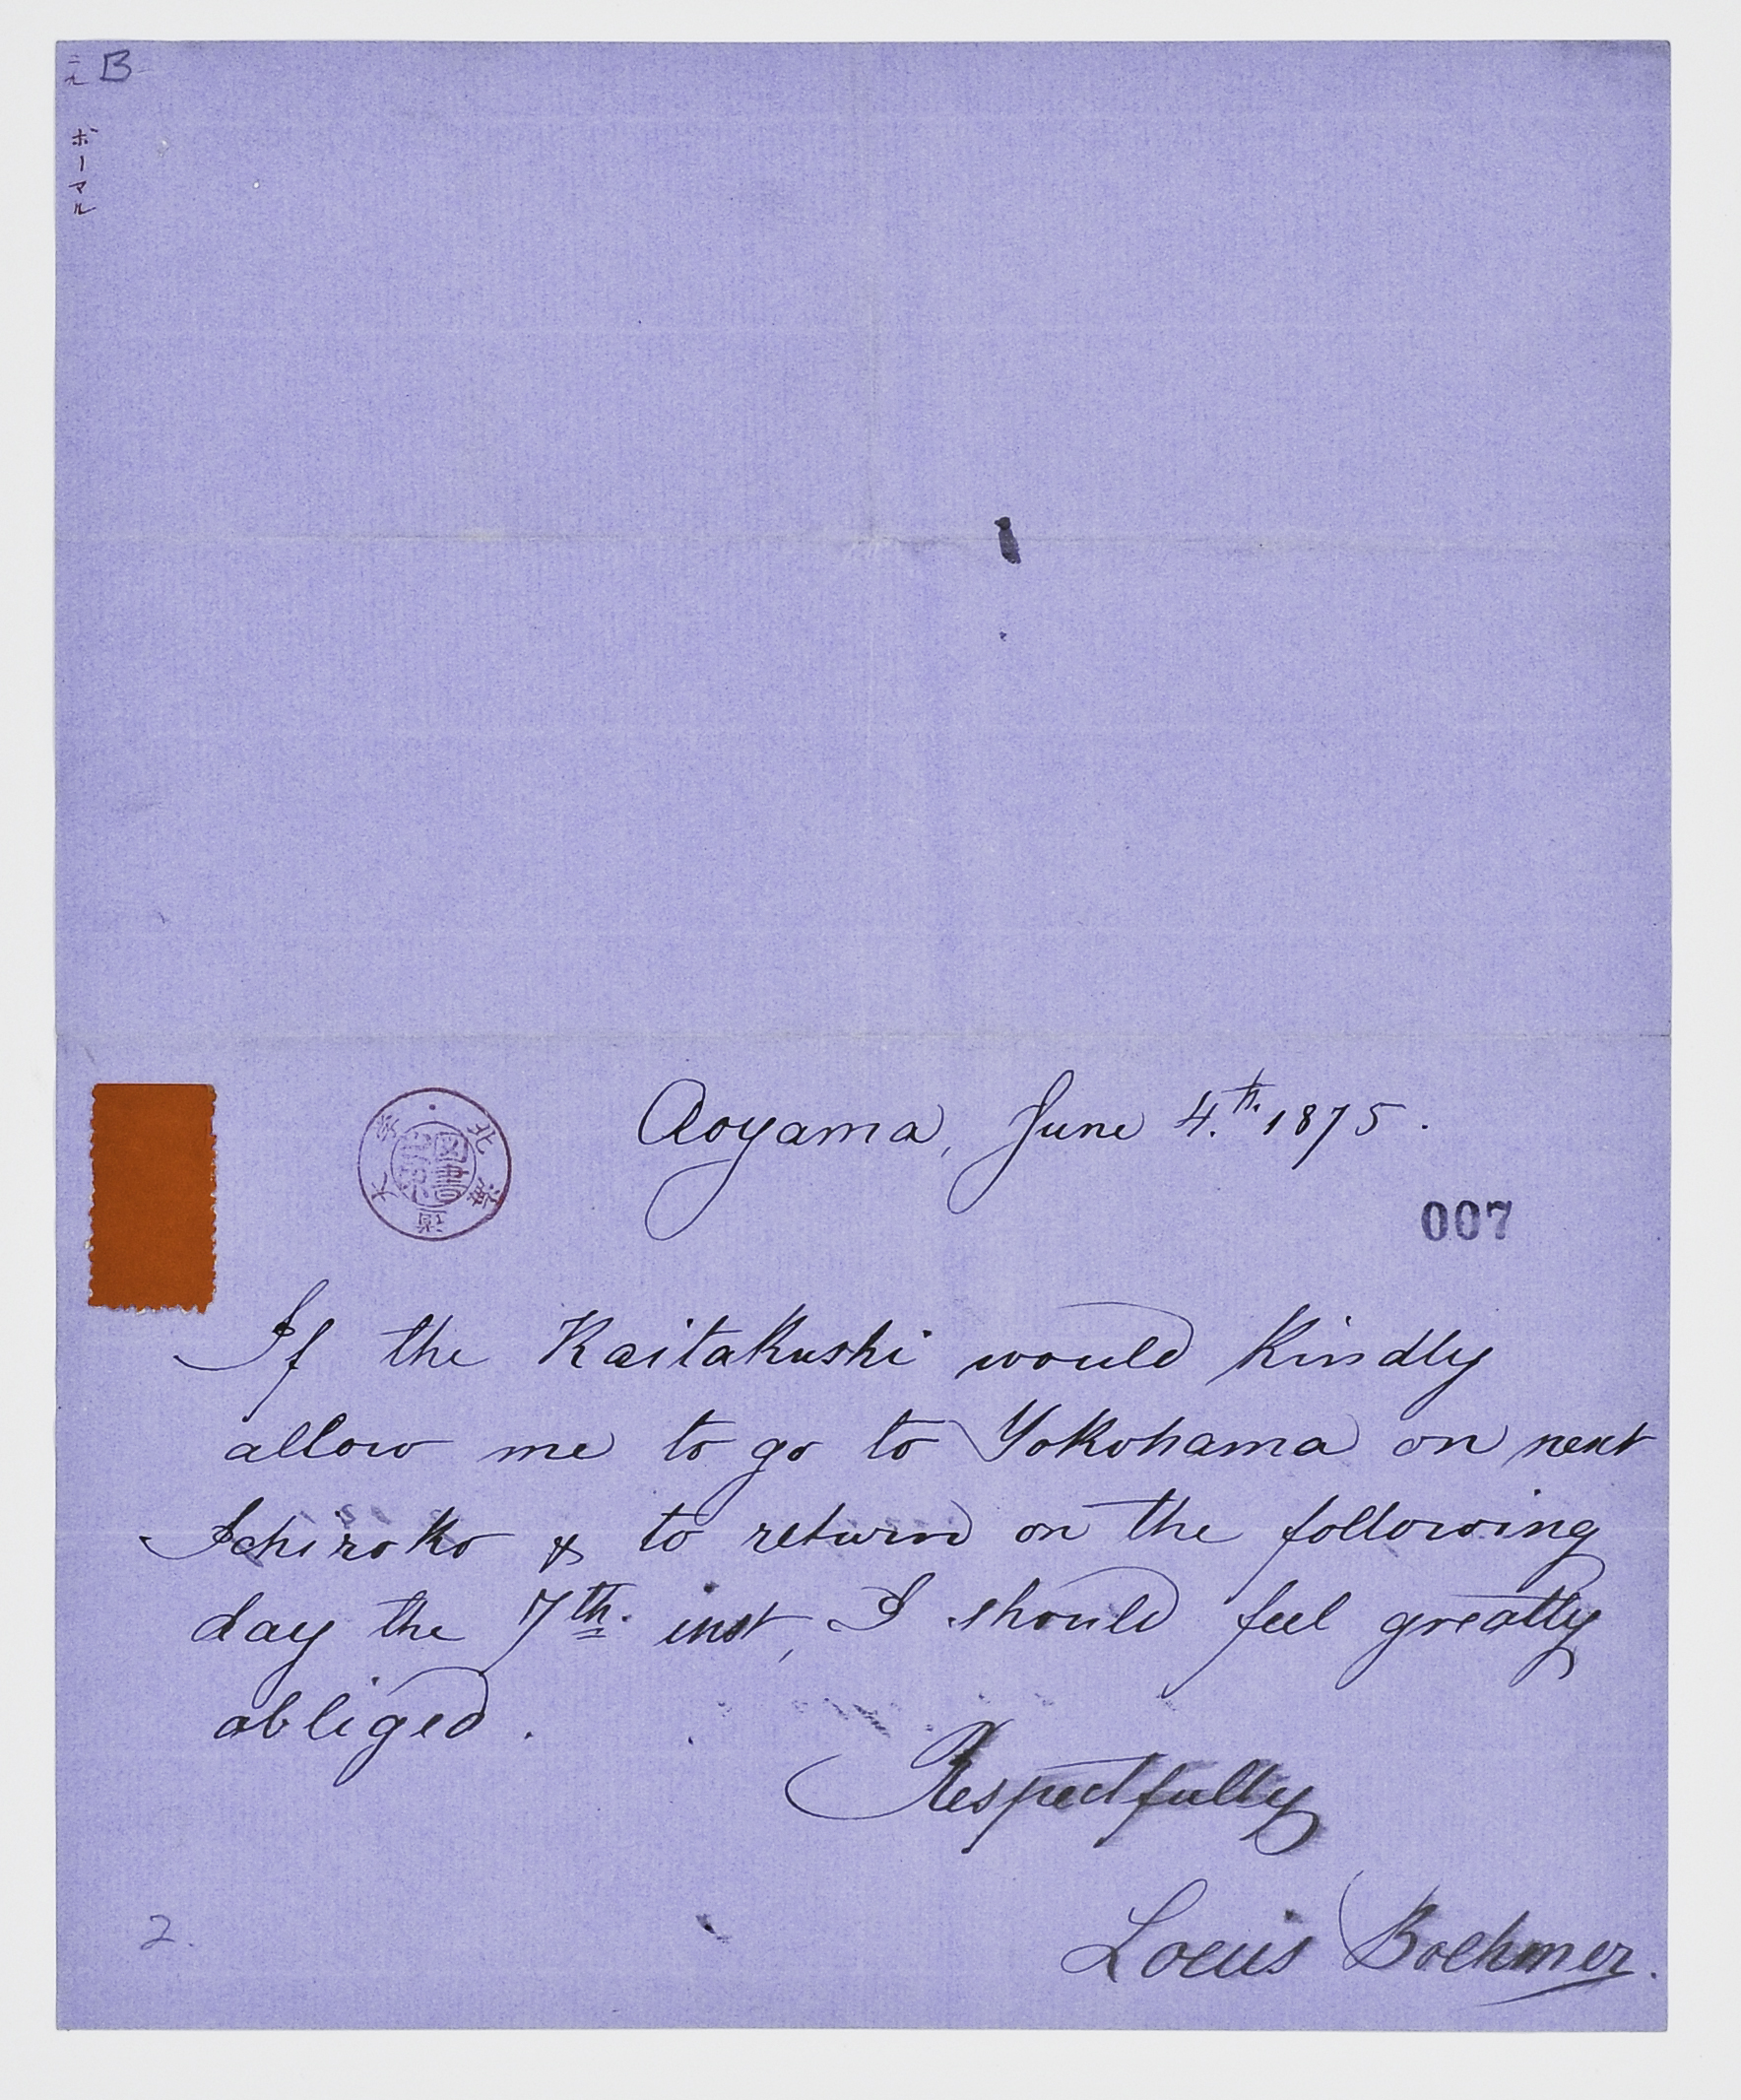 B
ボーマル
Aoyama, June 4.th 1875.
007
北海道大学
図書
If the Kaitakushi would kindly
allow me to go to Yokohama on next
Ichiroko & to return on the following
day the 7th. inst, I should feel greatly
obliged.
Respectfully
Louis Boehmer.
2.